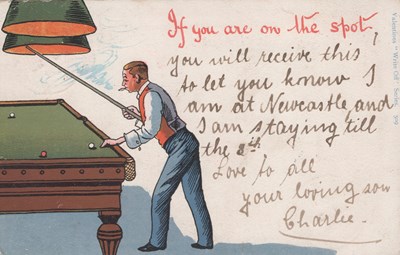 If you are on the spot,
you will receive this
to let you know I
am at Newcastle, and
I am staying till
the 8th.
Love to all
your loving son
Charlie.